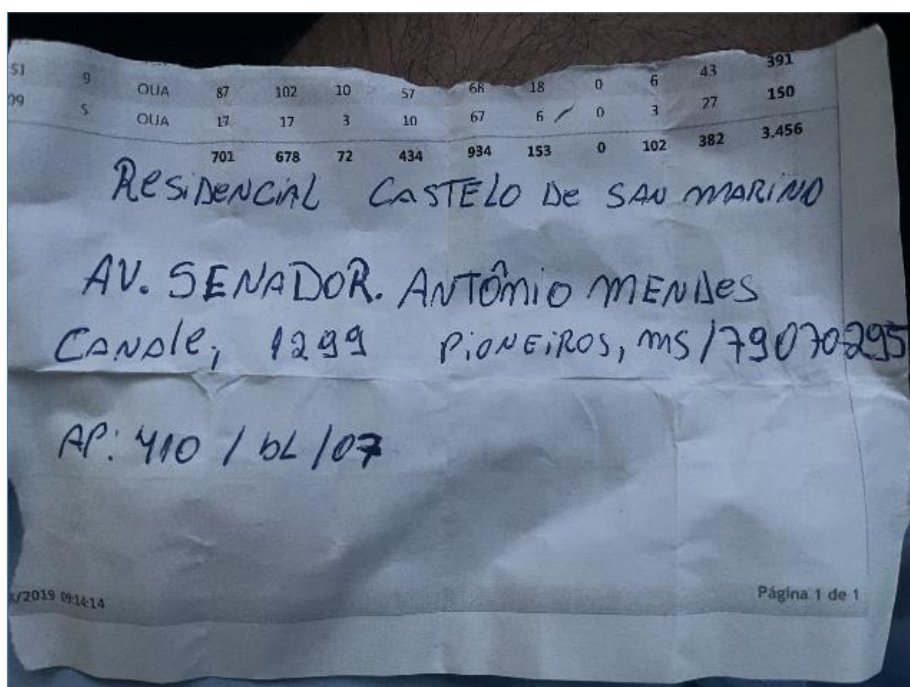 51 9 QUA 87 102 10 57 68 18 0 6 43 391
09 5 QUA 17 17 3 10 67 6 0 3 27 150
701 678 72 434 934 153 0 102 382 3.456
ResiDENCIAL CASTELO De SAN MARINO
AV. SENADOR. ANTÔNIO MENDes
CANDle, 1299 PiONEiROS, MS/79070295
AP: 410 / bL /07
/2019 09:14:14
Página 1 de 1